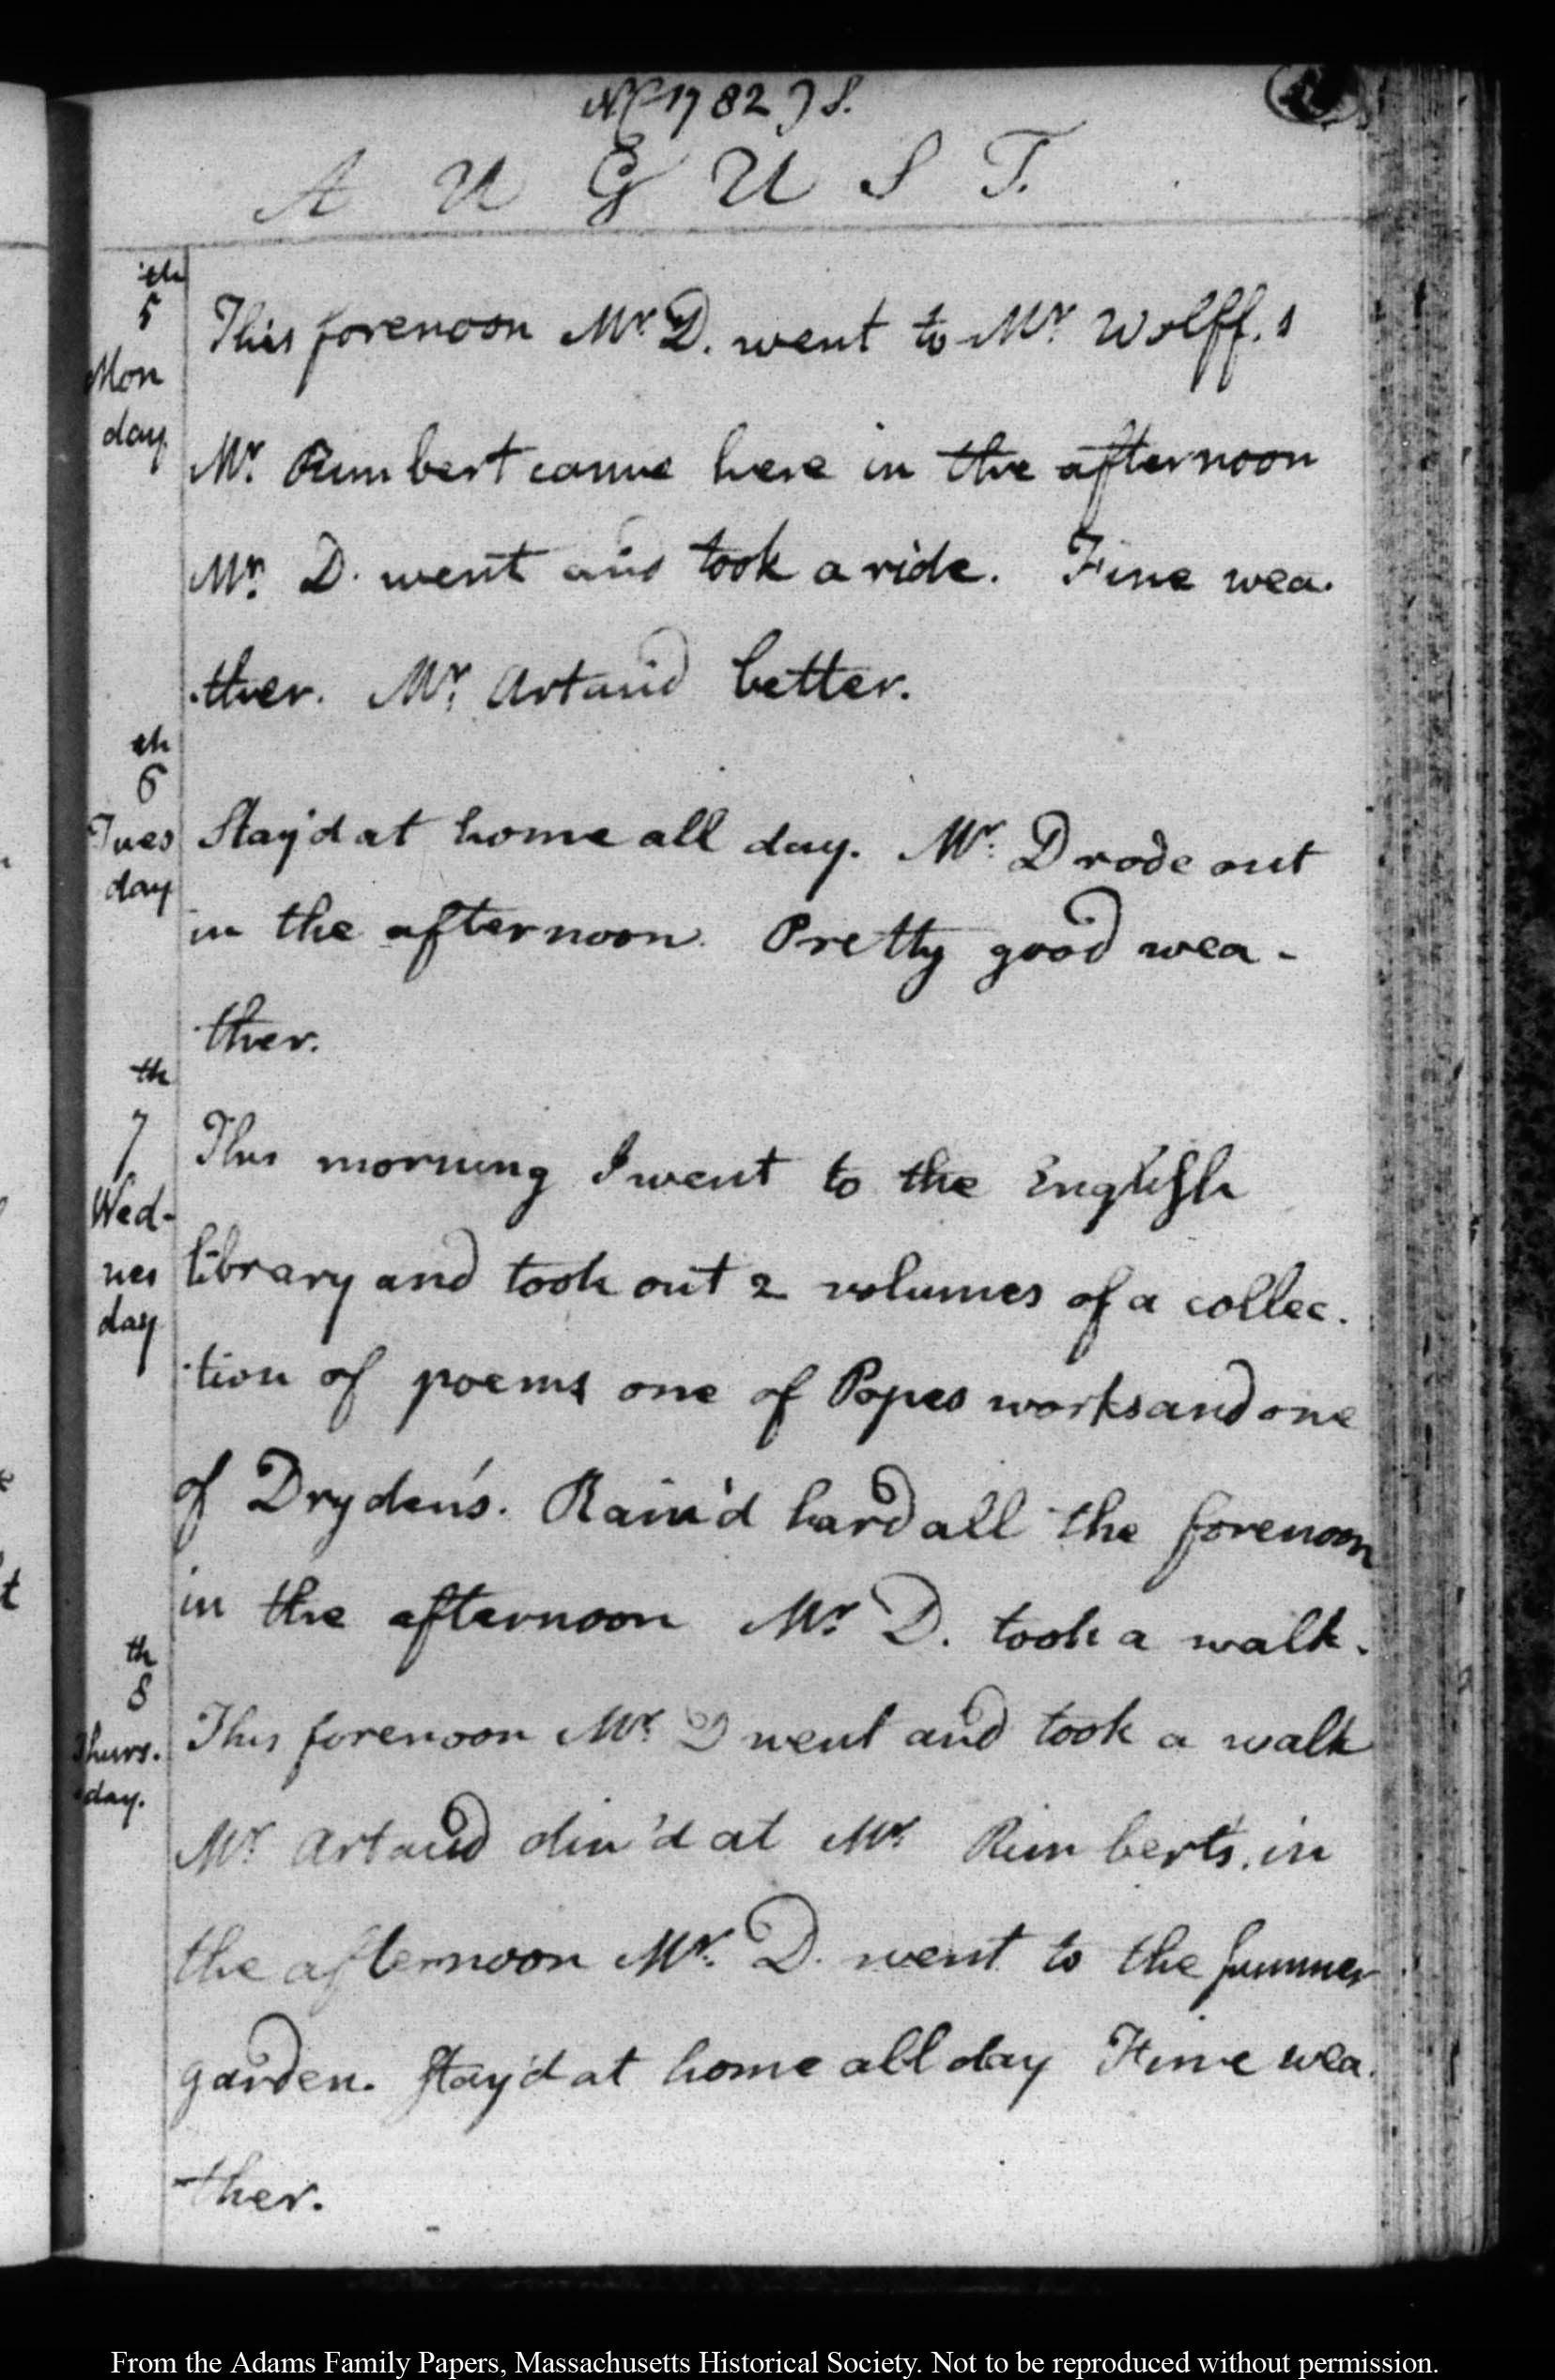 1782
A U G U S T.
th
5
Mon
day.
This forenoon Mr. D. went to Mr. Wolff.s
Mr. Rimbert came here in the afternoon
Mr. D. went and took a ride. Fine wea-
ther. Mr. Artaud better.
th
6
Tues
day
Stay'd at home all day. Mr. D rode out
in the afternoon. Pretty good wea-
ther.
th
7
Wed-
nes
day
This morning I went to the English
library and took out 2 volumes of a collec-
tion of poems one of Popes works and one
of Dryden's. Rain'd hard all the forenoon
in the afternoon Mr. D. took a walk.
th
8
Thurs-
day.
This forenoon Mr. D went and took a walk
Mr. Artaud din'd at Mr. Rimbert's. in
the afternoon Mr. D. went to the summer
garden. stay'd at home all day Fine wea-
ther.
From the Adams Family Papers, Massachusetts Historical Society. Not to be reproduced without permission.